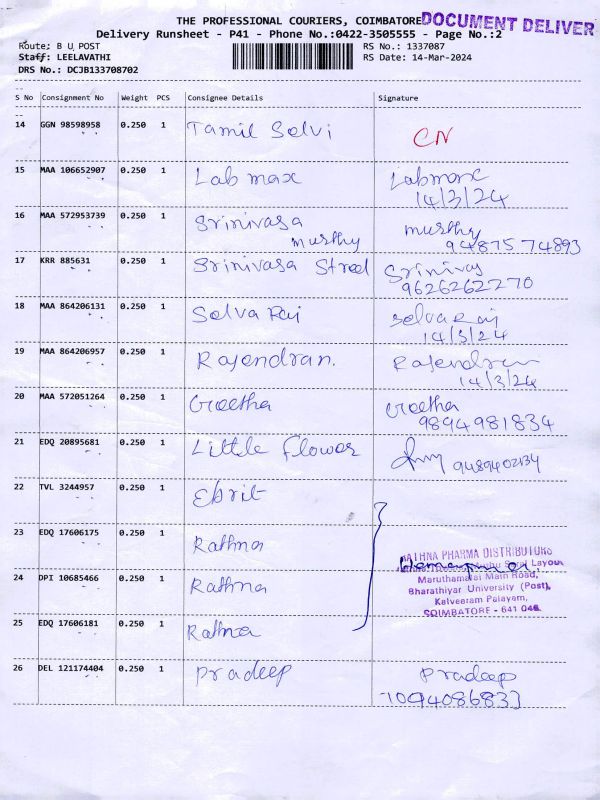 THE PROFESSIONAL COURIERS, COIMBATORE DOCUMENT DELIVER
Delivery Runsheet - P41 - Phone No.:0422-3505555 - Page No.:2
Route: B U POST RS No.: 1337087
Staff: LEELAVATHI RS Date: 14-Mar-2024
DRS No.: DCJB133708702
S No Consignment No Weight PCS Consignee Details Signature
14 GGN 98598958 0.250 1 Tamil Selvi CN
15 MAA 106652907 0.250 1 Lab max Labmax
14/3/24
16 MAA 572953739 0.250 1 Srinivasa murthy
murthy 94875 74893
17 KRR 885631 0.250 1 Srinivasa Street Srinivas
9626262270
18 MAA 864206131 0.250 1 Selva Raj Selva Raj
14/3/24
19 MAA 864206957 0.250 1 Rajendran. Rajendran
14/3/24
20 MAA 572051264 0.250 1 Geetha Geetha
9894981834
21 EDQ 20895681 0.250 1 Little Flower 9489402134
22 TVL 3244957 0.250 1 Ebrit
23 EDQ 17606175 0.250 1 Rathna
RATHNA PHARMA DISTRIBUTORS
Layout
24 DPI 10685466 0.250 1 Rathna Maruthamalai Main Road,
Bharathiyar University (Post),
Kalveeram Palayam,
COIMBATORE - 641 046.
25 EDQ 17606181 0.250 1 Rathna
26 DEL 121174404 0.250 1 Pradeep Pradeep